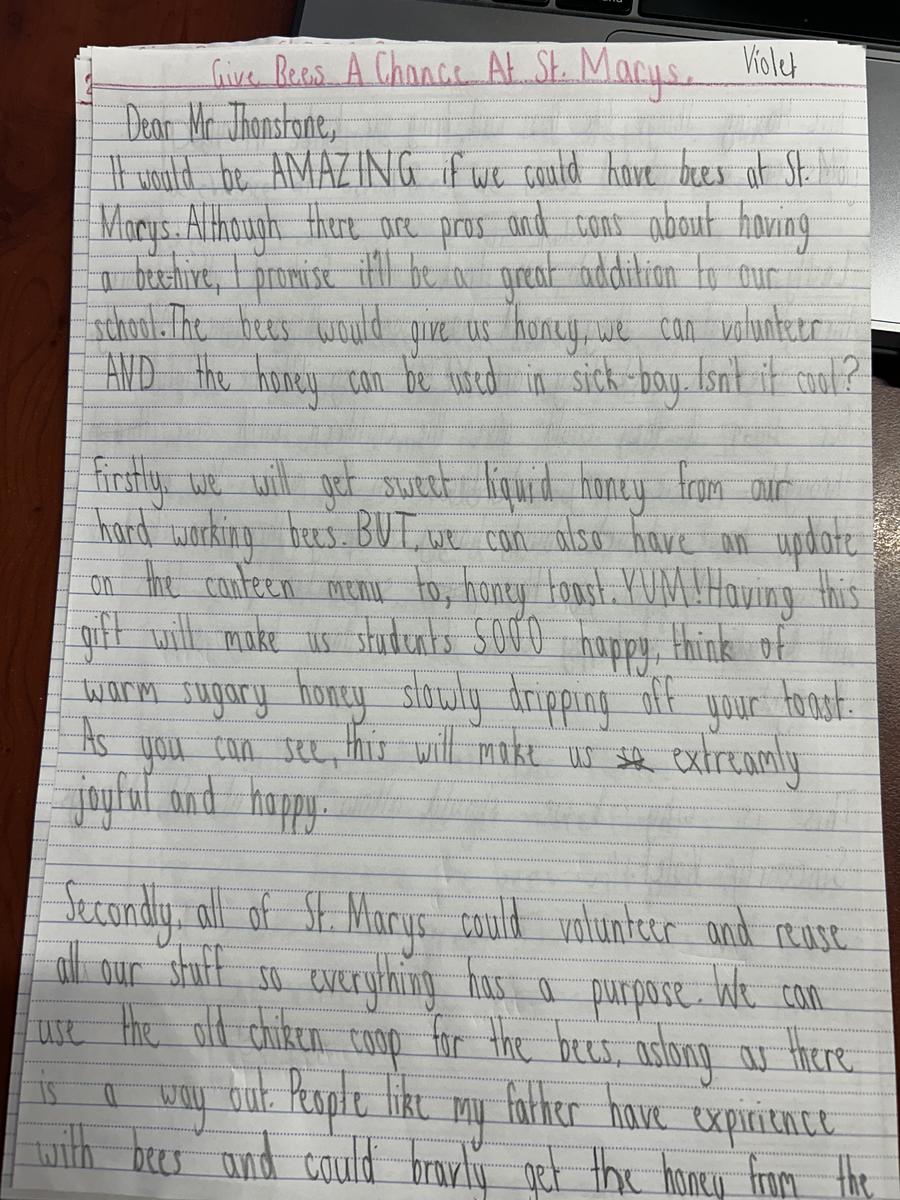 Give Bees A Chance At St. Marys. Violet
Dear Mr Jhonstone,
It would be AMAZING if we could have bees at St.
Marys. Although there are pros and cons about having
a bee-hive, I promise it'll be a great addition to our
school. The bees would give us honey, we can volunteer
AND the honey can be used in sick-bay. Isn't it cool?
Firstly, we will get sweet liquid honey from our
hard working bees. BUT, we can also have an update
on the canteen menu to, honey toast. YUM! Having this
gift will make us students SOOO happy, think of
warm sugary honey slowly dripping off your toast.
As you can see, this will make us so extreamly
joyful and happy.
Secondly, all of St. Marys could volunteer and rease
all our stuff so everything has a purpose. We can
use the old chiken coop for the bees, aslong as there
is a way out. People like my father have expirience
with bees and could bravly get the honey from the